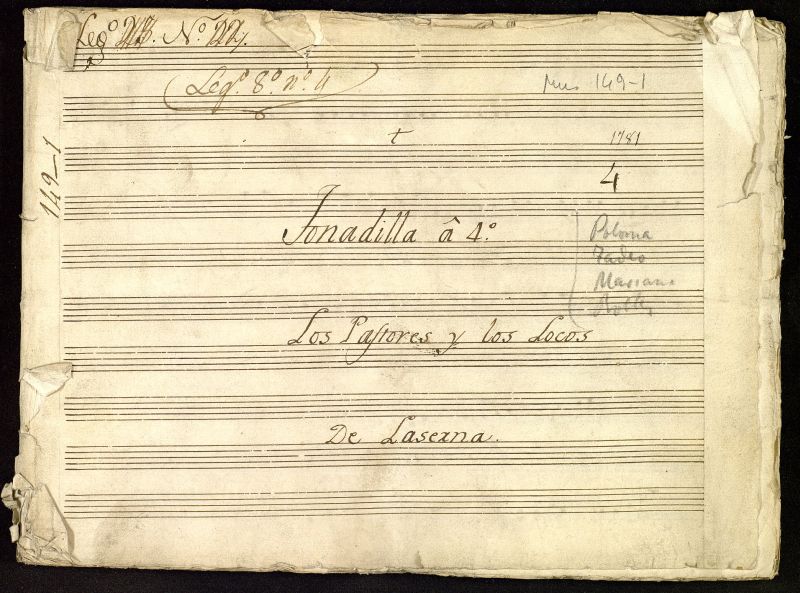 Legº 23. Nº 22.
Legº. 8º. nº. 4
Mus 149-1
149-1
1781
4
Tonadilla â 4º.
Polonia
Tadeo
Mariana
Los Pastores y los Locos
De Laserna.